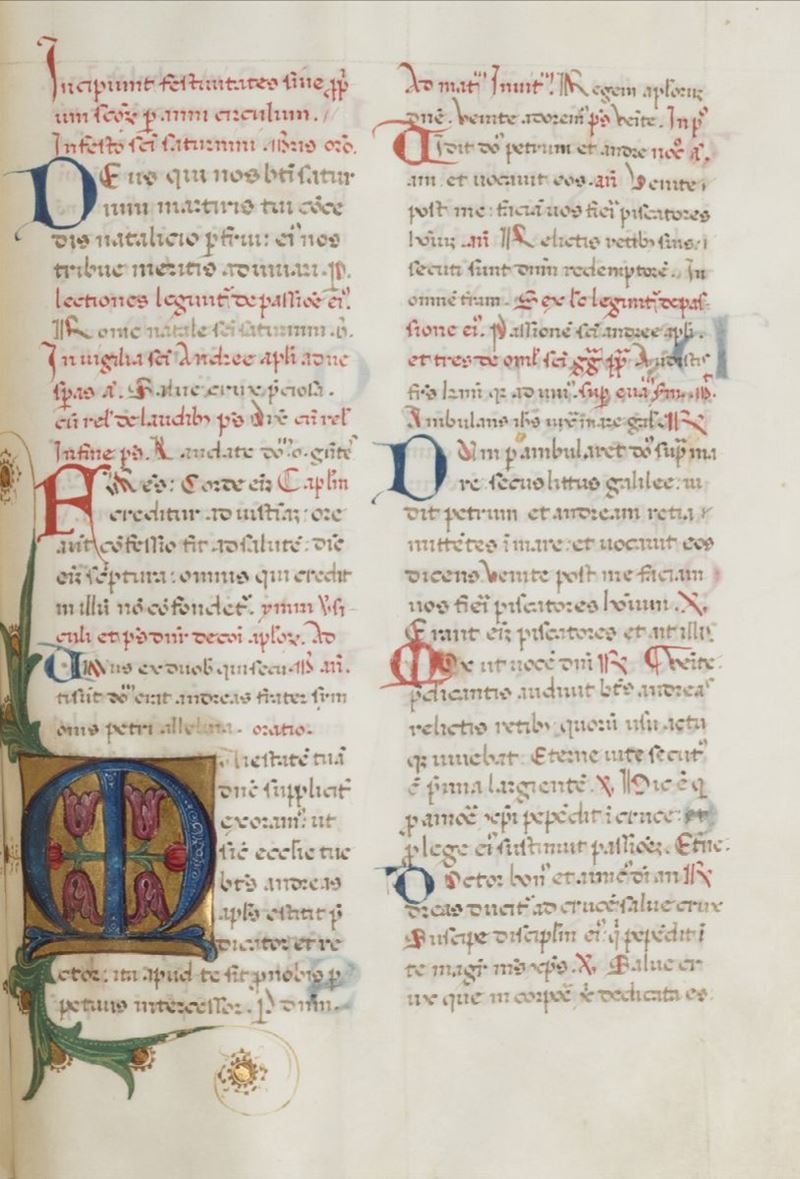 Incipiunt festiuitates siue ꝓp̃
um scõꝝ ꝑ anni circulum.
In festo scĩ saturnini. m̃ris orõ.
DEus qui nos bti satur
nini martiris tui cõce
dis natalicio ꝑfrui: eiꝰ nos
tribue meritis adiuuari. ꝑ.
lectiones legunt᷑ de passiõe eiꝰ.
In uigilia scĩ Andree apli ad ue
sꝑas a͂. Salue crux p̃ciosa.
cũ rel̃ de laudibꝰ pꝰ dix̃ cũ rel̃
In fine pꝰ. Laudate dõ. o. gẽtẽ
FRr̃es: Corde eñ Capl̃m
creditur ad iusticiã: ore
aut̃ cõfessio fit ad salutẽ: dic̃
eñ sc̃ptura: omnis qui credit
in illũ nõ cõfundet᷑. ymni
culi et pꝰ dnr̃ de coĩ aploꝝ. Ad
Unus ex duobꝰ qui secu m̃. an̄.
ti sũt dõꝫ erat andreas frater sym
onis petri alleluia. oratio.
Maiestatẽ tuã
dnẽ suppliciť
exoramꝰ: ut
sic̃ ecclie tue
btꝰ andreas
apl̃s extitit p̃
dicator et re
ctor: ita apud te sit ꝓ nobis ꝑ
petuus intercessor. P dnm̃.
Ad mať Inuiť. Regem aploꝝ
dnẽ. Venite adoremꝰ. pꝰ venite. In pꝰ
Uidit dõs petrum et andre noc̃ a͂.
am et uocauit eos. an̄ Venite
post me: faciã uos fieri piscatores
hoĩuꝫ. an̄ Relictis retibꝰ suis
secuti sunt dnm̃ redemptorẽ. In
omnẽ terram. Sex lc̃ legunt᷑ de pas
sione eiꝰ. Passionẽ scĩ andree apli.
et tres de omł scĩ gg̃ ꝓp̃. Audistis
Ambulans ihs iuxta mare galĩ. R
DUm ꝑambularet dõs sup̃ ma
re secus littus galilee: ui
dit petrum et andream retia
mittẽtes ĩ mare: et uocauit eos
dicens Venite post me faciam
uos fieri piscatores hoĩum. V.
Erant eñ piscatores et ait illis
Mox ut uocẽ dnĩ R Venite.
p̃dicantis audiuit btꝰ andreas
relictis retibꝰ quorũ usu actu
qꝫ uiuebat. Eterne uite secutꝰ
ẽ p̃mia largientẽ. V. Hic ẽ q̃
ꝓ amoẽ xpĩ pepẽdit ĩ cruce: et
ꝓ lege eiꝰ sustinuit passiõeꝫ. Et̃ne.
Doctor bonꝰ et amicꝰ dĩ an R
dreas ducit᷑ ad crucẽ: salue crux
Suscipe discipl̃m eiꝰ q̃ pepẽdit ĩ
te magr̃ mꝰ xp̃s. V. Salue cr
ux que in corpoẽ xp̃ dedicata es